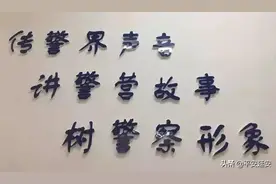 传警界声音
讲警营故事
树警察形象
头条